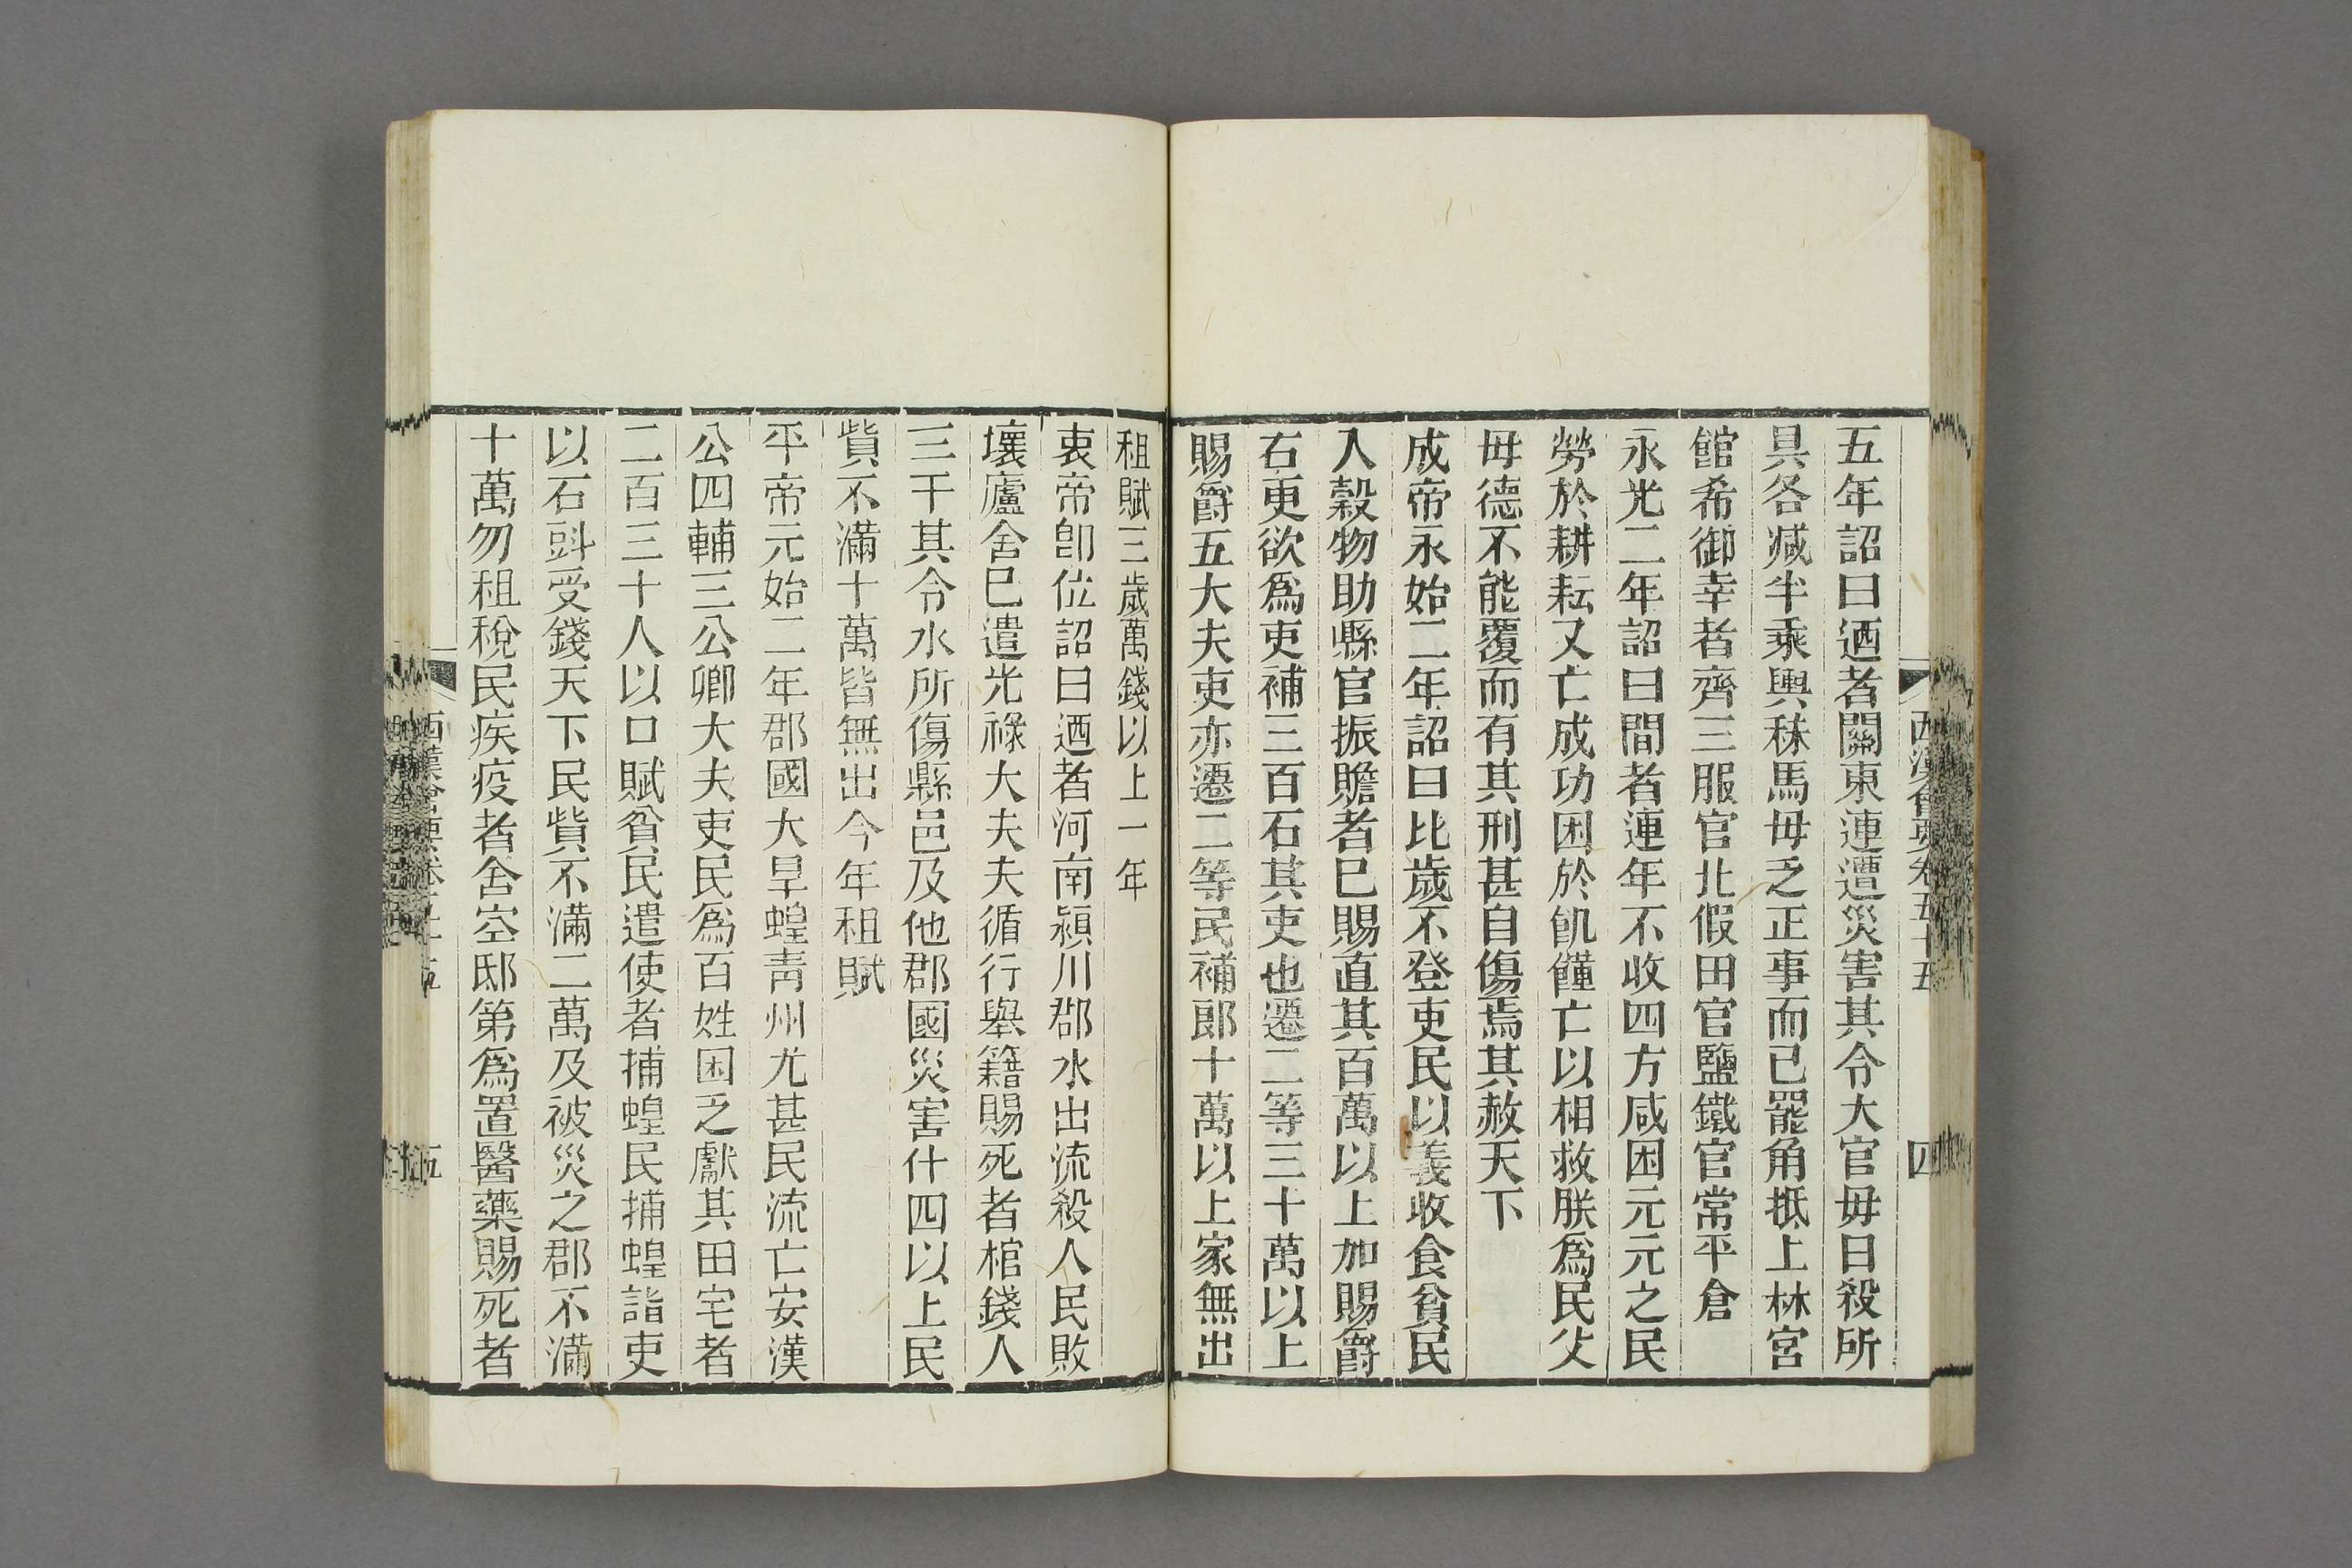 西漢會要卷五十五
四
五年詔曰迺者關東連遭災害其令大官毋日殺所
具各減半乘輿秣馬毋乏正事而已罷角抵上林宮
館希御幸者齊三服官北假田官鹽鐵官常平倉
永光二年詔曰間者連年不收四方咸困元元之民
勞於耕耘又亡成功困於飢饉亡以相救朕爲民父
母德不能覆而有其刑甚自傷焉其赦天下
成帝永始二年詔曰比歲不登吏民以義收食貧民
入穀物助縣官振贍者已賜直其百萬以上加賜爵
右更欲爲吏補三百石其吏也遷二等三十萬以上
賜爵五大夫吏亦遷二等民補郎十萬以上家無出
租賦三歲萬錢以上一年
哀帝卽位詔曰迺者河南潁川郡水出流殺人民敗
壞廬舍已遣光祿大夫循行舉籍賜死者棺錢人
三千其令水所傷縣邑及他郡國災害什四以上民
貲不滿十萬皆無出今年租賦
平帝元始二年郡國大旱蝗靑州尤甚民流亡安漢
公四輔三公卿大夫吏民爲百姓困乏獻其田宅者
二百三十人以口賦貧民遣使者捕蝗民捕蝗詣吏
以石㪷受錢天下民貲不滿二萬及被災之郡不滿
十萬勿租稅民疾疫者舍空邸第爲置醫藥賜死者
西漢會要卷五十五
五